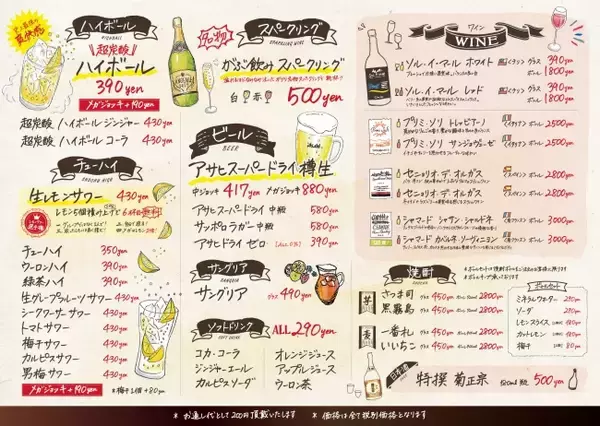 ハイボール
HIGHBALL
超炭酸
ハイボール
390yen
メガジョッキ+190yen
超炭酸 ハイボール ジンジャー 430yen
超炭酸 ハイボール コーラ 430yen
チューハイ
生レモンサワー 430yen
チューハイ 350yen
ウーロンハイ 390yen
緑茶ハイ 390yen
生グレープフルーツサワー 430yen
シークワーサーサワー 430yen
トマトサワー 430yen
梅干サワー 430yen
カルピスサワー 430yen
男梅サワー 430yen
メガジョッキ+190yen
*梅干1個+80yen
スパークリング
SPARKLING WINE
がぶ飲みスパークリング
白 赤
500yen
ビール
BEER
アサヒスーパードライ 樽生
中ジョッキ 417yen メガジョッキ 880yen
アサヒスーパードライ 中瓶 580yen
サッポロラガー 中瓶 580yen
アサヒドライ ゼロ 390yen
サングリア
SANGRIA
サングリア グラス 490yen
ソフトドリンク
SOFT DRINK
ALL 290yen
コカ・コーラ
ジンジャーエール
カルピスソーダ
オレンジジュース
アップルジュース
ウーロン茶
ワイン
WINE
ソル・イ・マール ホワイト グラス 390yen
ボトル 1800yen
ソル・イ・マール レッド グラス 390yen
ボトル 1800yen
プリミ・ソリ トレッビアーノ ボトル 2500yen
プリミ・ソリ サンジョヴェーゼ ボトル 2500yen
セニョリオ・デ・オルガス ボトル 2800yen
セニョリオ・デ・オルガス ボトル 2800yen
シャマード シャサン・シャルドネ ボトル 3000yen
シャマード カベルネ・ソーヴィニヨン ボトル 3000yen
焼酎
芋
さつま司 グラス 450yen ボトル 2800yen
黒霧島 グラス 450yen ボトル 2800yen
麦
一番札 グラス 450yen ボトル 2800yen
いいちこ グラス 450yen ボトル 2800yen
ボトルセット
ミネラルウォーター
ソーダ
レモンスライス
カットレモン
梅干
日本酒
特撰 菊正宗 500yen
*お通し代として200円頂戴いたします *価格は全て税別価格となります